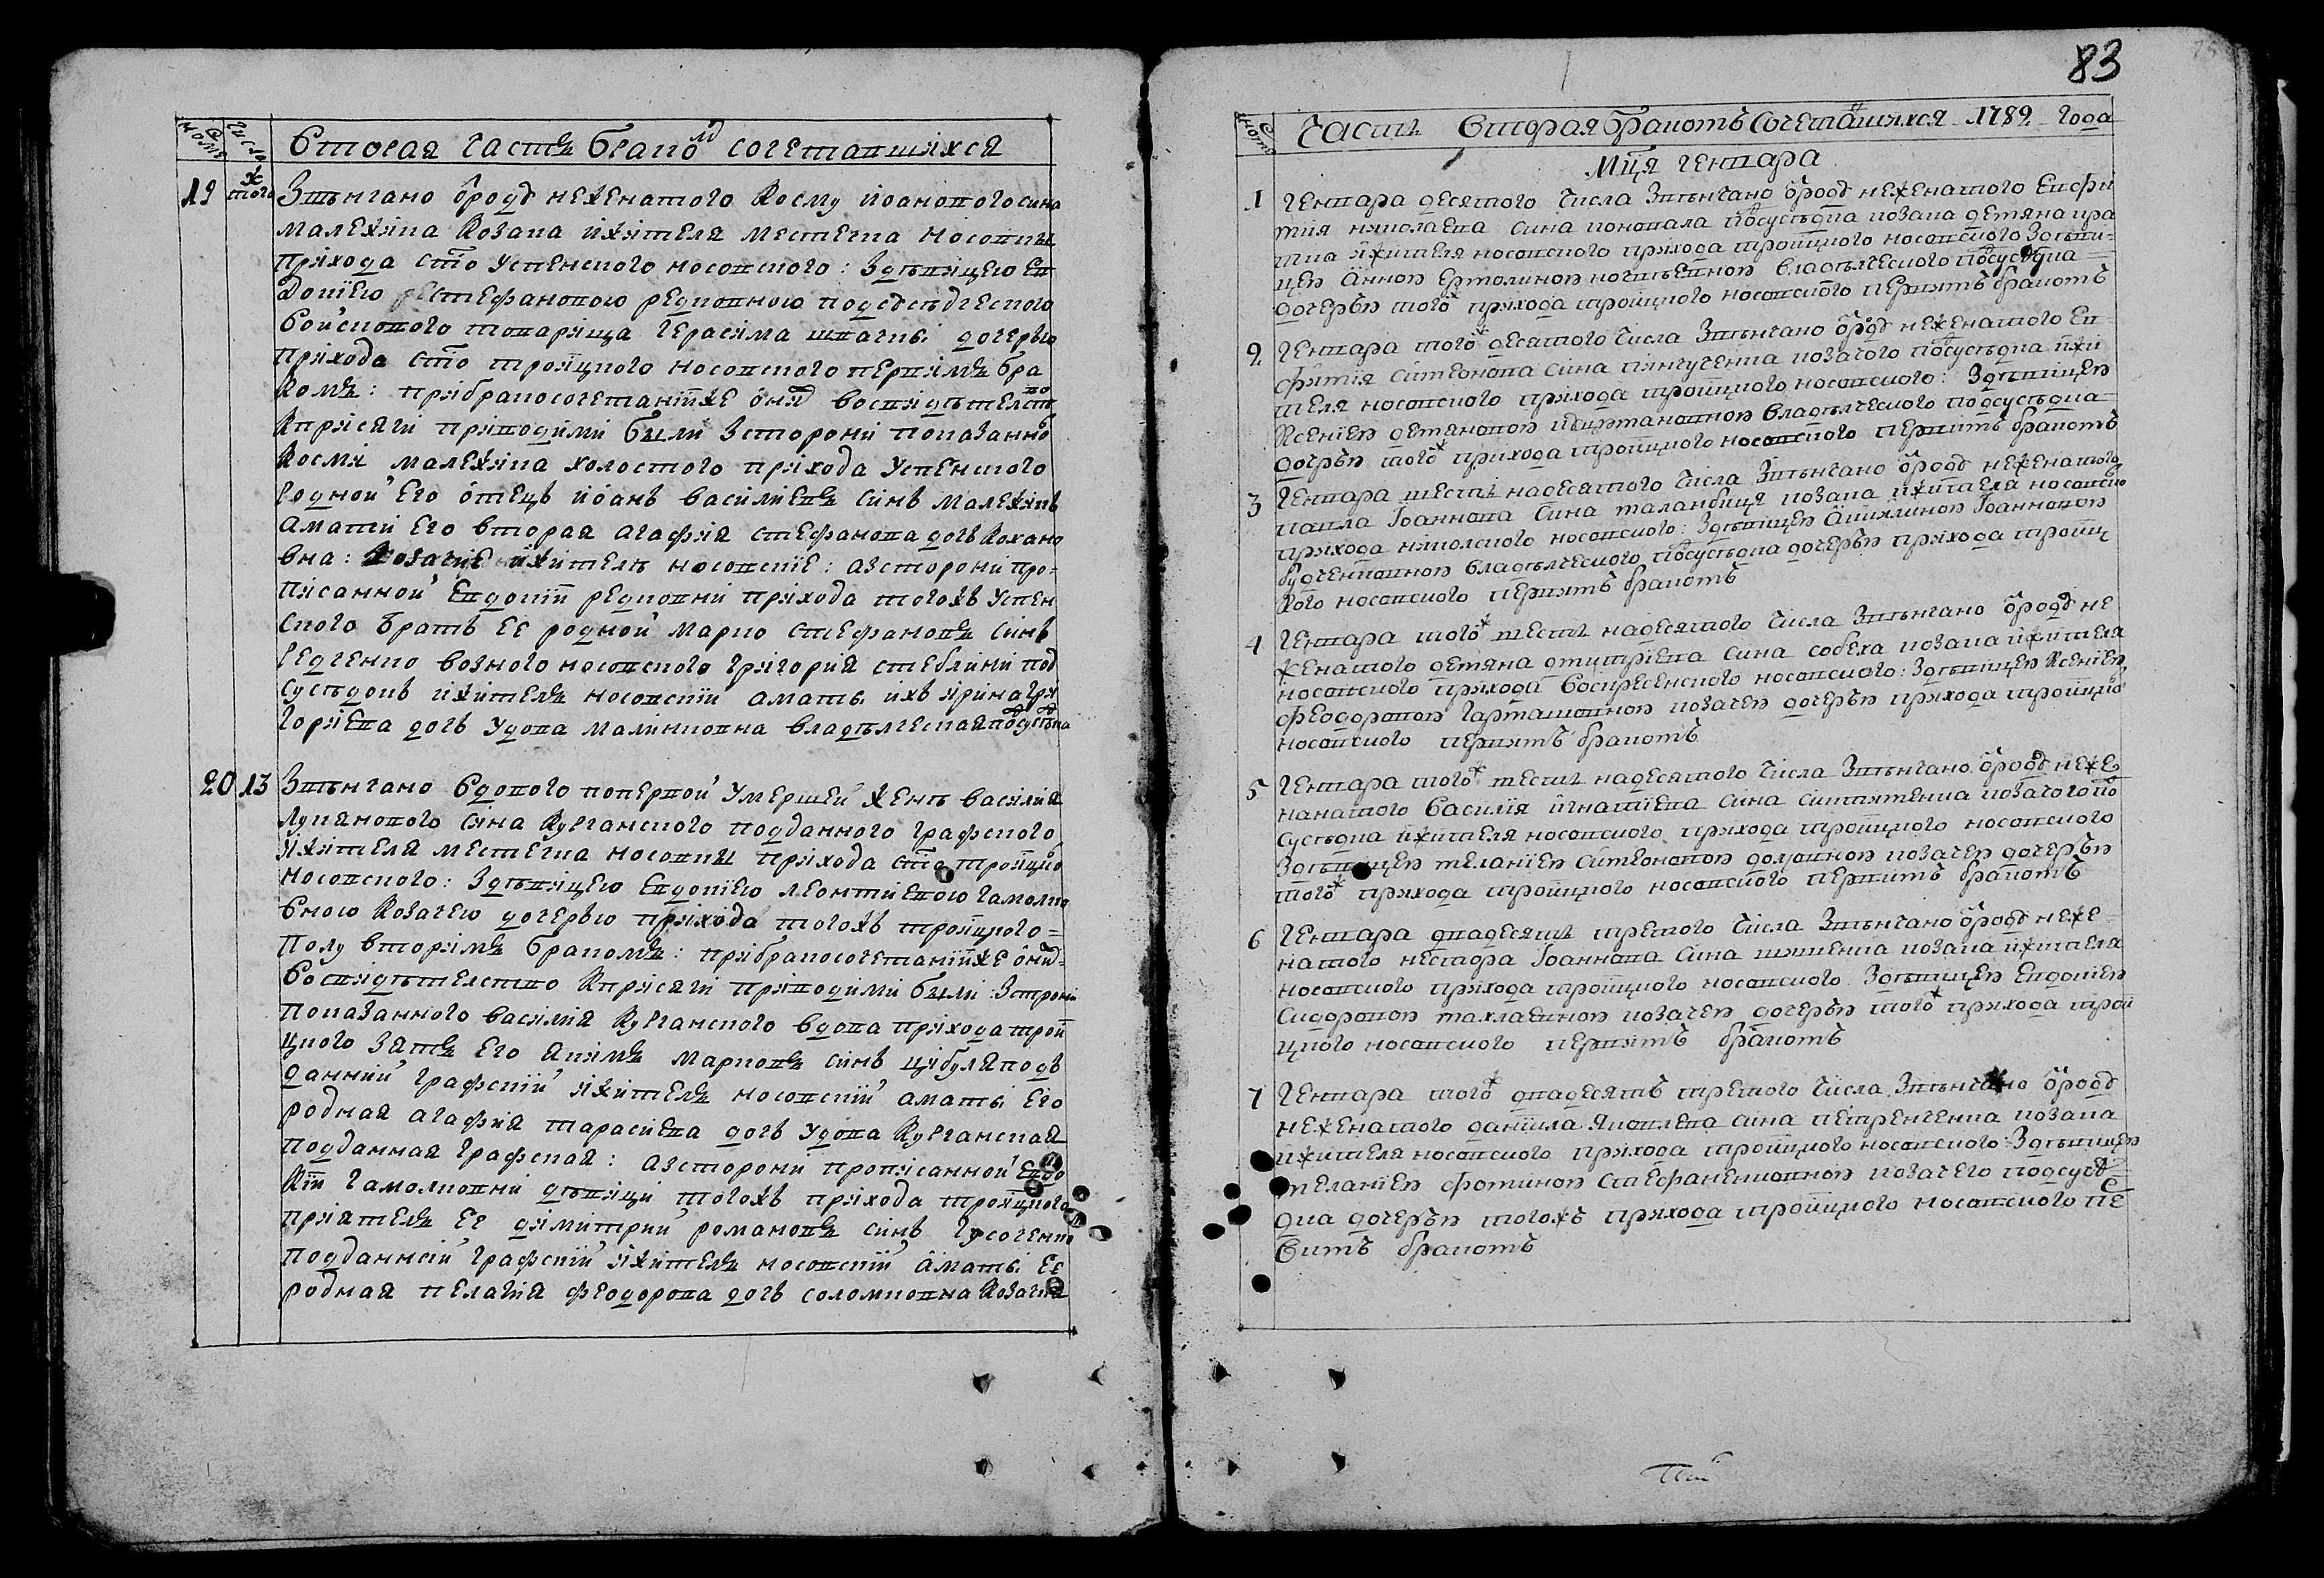 83
Вторая часть бракомъ сочетавшихся
19 тогож Звѣнчано отрока неженатого Косму Иоановогосина
малежика козака ижителя местечка Носовки
прихода сто Успенского носовского: Здѣвицею Ев
докиею Стефановою редковною подсѣдческого
войскового товарища Герасима шпачкы дочерью
прихода сто троицкого носовского первимъ бра
комъ: прибракосочетанииже онид восвидѣтелство
Кприсяги приводими были Зсторони показанно
Косми малежика холостого прихода Успенского
родной его отецъ иоанъ василиевъ синъ малежикъ
амати его вторая агафия стефанова дочъ кохано
вна: козачие ижители носовские: азсторони про-
писанной Евдокии редковни прихода тогожъ Успен
ского братъ ее родной марко стефановъ синъ
редченко возного носовского григория стеблини под
сусѣдокъ ижителъ носовский амать ихъ ирина гри
гориева дочъ Удова малинковна владѣлческая подсусѣдка
20 13 Звѣнчано вдового поперvой умершей женѣ василия
лукянового сина Курганского подданного графского
ижителя местечка носовки прихода сто троицко
носовского: Здѣвицею Евдокиею леонтиевою гамолко
вною козачею дочерью прихода тогожъ троицкого
полу вторимъ бракомъ: прибракосочетанииже онид
восвидѣтелство Кприсяги приводими были: Зсторони
показанного василия Курганского вдова прихода трои
цкого зять его якимъ марковъ синъ цибуля подъ
данний графский ижителъ носовский амать его
родная агафия тарасиева дочъ удова Курганская
подданная графская: азсторони прописанной Евдо
кии гамолковни дѣвици тогожъ прихода троицкого
приятель ее димитрий романовъ синъ гусоченко
подданний графский ижителъ носовский амать ее
родная пелагия феодорова дочъ соломковна козачка
часть вторая бракомъ сочетавшихся 1782 года
мця генвара
1 генвара десятого числа Звѣнчано отрока неженатого Евфи
мия николаева сина коновала подсусѣдка козака демяна кра
вка ижителя носовского прихода троицкого носовского Здѣви-
цею Анною Ермолиною ночъвеиною владѣлческого подсусѣдка
дочерью того ж прихода троицкого носовского первимъ бракомъ
2 генвара того ж десятого числа Звѣнчано отрока неженатого Ев-
фимия симеонова сина пинчученка козачого подсусѣдка ижи
теля носовского прихода троицкого носовского: Здѣвицею
Ксениею демяновою владѣлческого подсусѣдка
дочерью того ж прихода троицкого носовского первимъ бракомъ
3 генвара шесть надесятого числа Звѣнчано отрока неженатого
павла Иоаннова сина козака ижителя носовско
прихода николского носовского: Здѣвицею Акилиною Иоанновою
будченковною владѣлческого подсусѣдка дочерью прихода троиц
кого носовского первимъ бракомъ
4 генвара того ж шесть надесятого числа Звѣнчано отрока не
женатого демяна дмитриева сина собеха козака ижителя
носовского прихода воскресенского носовского: Здѣвицею Ксениею
феодоровою гармашовною козачею дочерью прихода троицко
носовского первимъ бракомъ
5 генвара того ж шесть надесятого числа Звѣнчано отрока неже
нанатого василия игнатиева сина козачого по
сусѣдка ижителя носовского прихода троицкого носовского
Здѣвицею меланиею симеоновою козачею дочерью
того ж прихода троицкого носовского первимъ бракомъ
6 генвара двадесять третого числа Звѣнчано отрока неже-
натого нестора Иоаннова сина козака ижителя
носовского прихода троицкого носовского: Здѣвицею Евдокиею
сидоровою козачею дочерью того ж прихода трои
цкого носовского первимъ бракомъ
7 генвара того ж двадесять третого числа Звѣнчано отрока
неженатого даниила яковлева сина петренченка козака
ижителя носовского прихода троицкого носовского Здѣвицею
меланиею фоминою Стефаненковною козачего подсусѣ
дка дочерью тогожъ прихода троицкого носовского пе
вимъ бракомъ